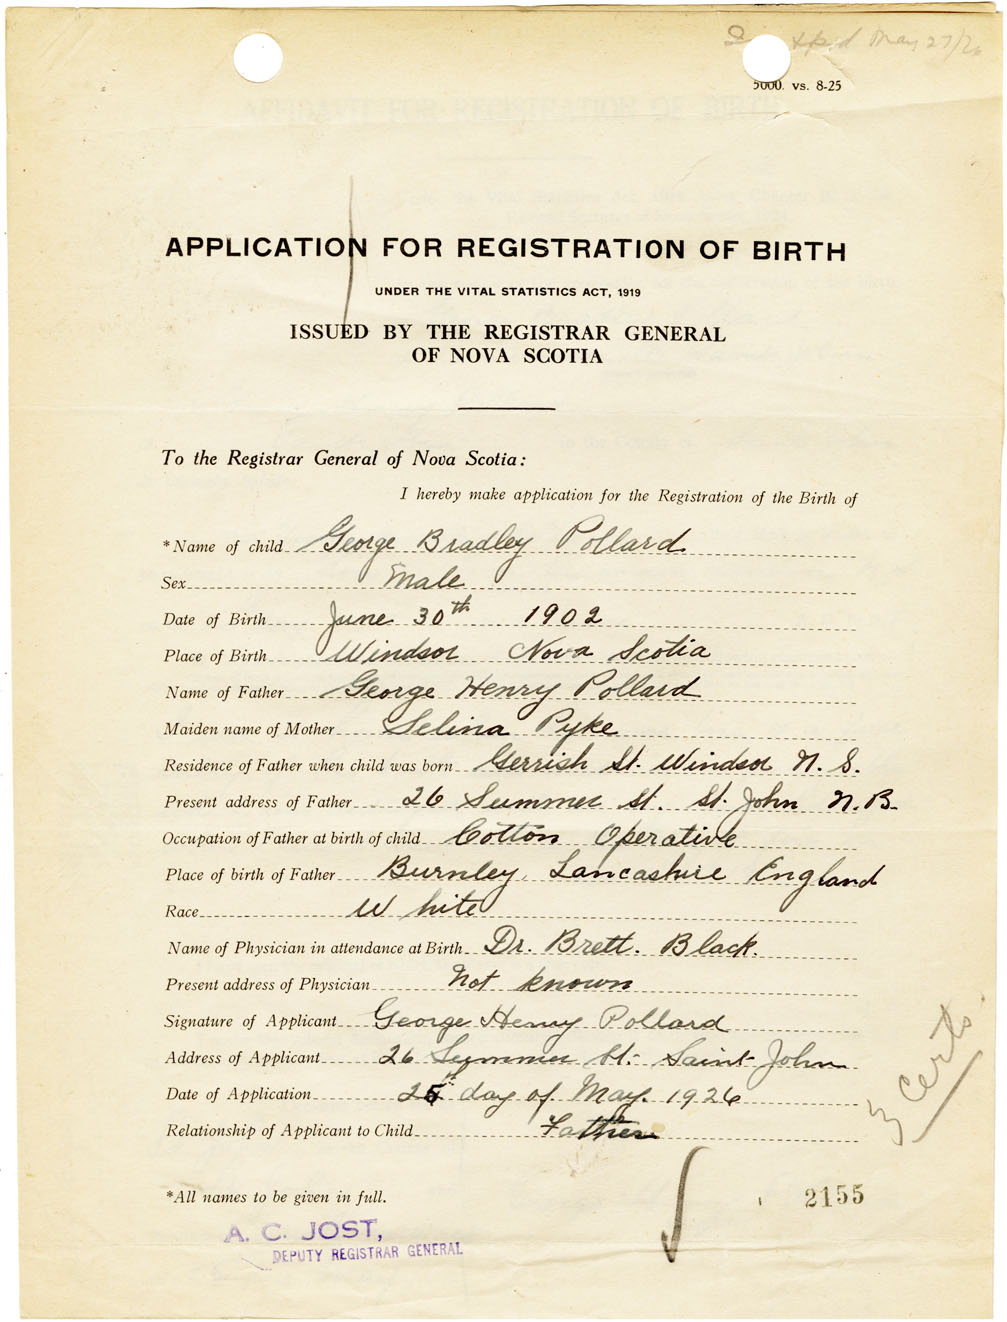 May 27/26
5000. vs. 8-25
APPLICATION FOR REGISTRATION OF BIRTH
UNDER THE VITAL STATISTICS ACT, 1919
ISSUED BY THE REGISTRAR GENERAL
OF NOVA SCOTIA
To the Registrar General of Nova Scotia:
I hereby make application for the Registration of the Birth of
*Name of child George Bradley Pollard
Sex Male
Date of Birth June 30th 1902
Place of Birth Windsor Nova Scotia
Name of Father George Henry Pollard
Maiden name of Mother Selina Pyke
Residence of Father when child was born Gerrish St. Windsor N. S.
Present address of Father 26 Summer St. St. John N.B.
Occupation of Father at birth of child Cotton Operative
Place of birth of Father Burnley, Lancashire England
Race White
Name of Physician in attendance at Birth Dr. Brett. Black.
Present address of Physician Not known
Signature of Applicant George Henry Pollard
Address of Applicant 26 Summer St. Saint John
Date of Application 25th day of May. 1926
Relationship of Applicant to Child Father
3 certs.
*All names to be given in full.
2155
A. C. JOST,
DEPUTY REGISTRAR GENERAL